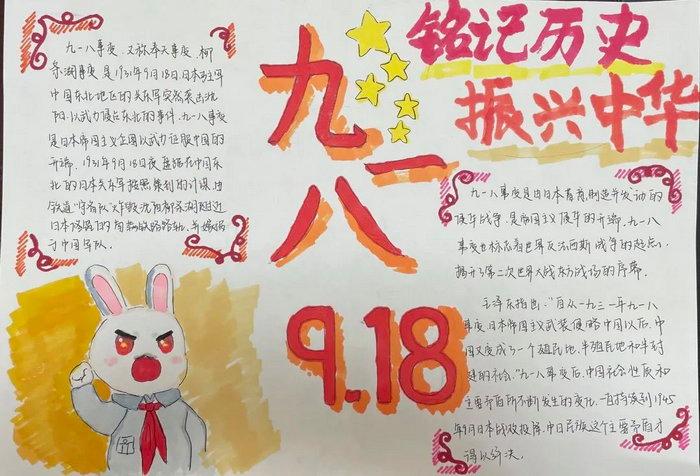 九一八事变，又称奉天事变、柳
条湖事变是1931年9月18日日本驻军
中国东北地区的关东军突然袭击沈
阳，以武力侵占东北的事件。九一八事变
是日本帝国主义企图以武力征服中国的
开端，1931年9月18日夜盘踞在中国东
北的日本关东军按照策划的计谋，由
铁道“守备队”炸毁沈阳柳条湖附近
日本修筑的南满铁路路轨，并嫁祸
于中国军队。
九一八
9.18
铭记历史
振兴中华
九一八事变是由日本蓄意制造并发动的
侵华战争，是帝国主义侵华的开端。九一八
事变也标志着世界反法西斯战争的起点，
揭开了第二次世界大战东方战场的序幕。
毛泽东指出：“自从一九三一年九一八
事变日本帝国主义武装侵略中国以后，中
国又变成了一个殖民地、半殖民地和半封
建的社会。”九一八事变后，中国社会性质和
主要矛盾所不断发生的变化，一直持续到1945
年9月日本战败投降，中日民族这个主要矛盾才
得以解决。